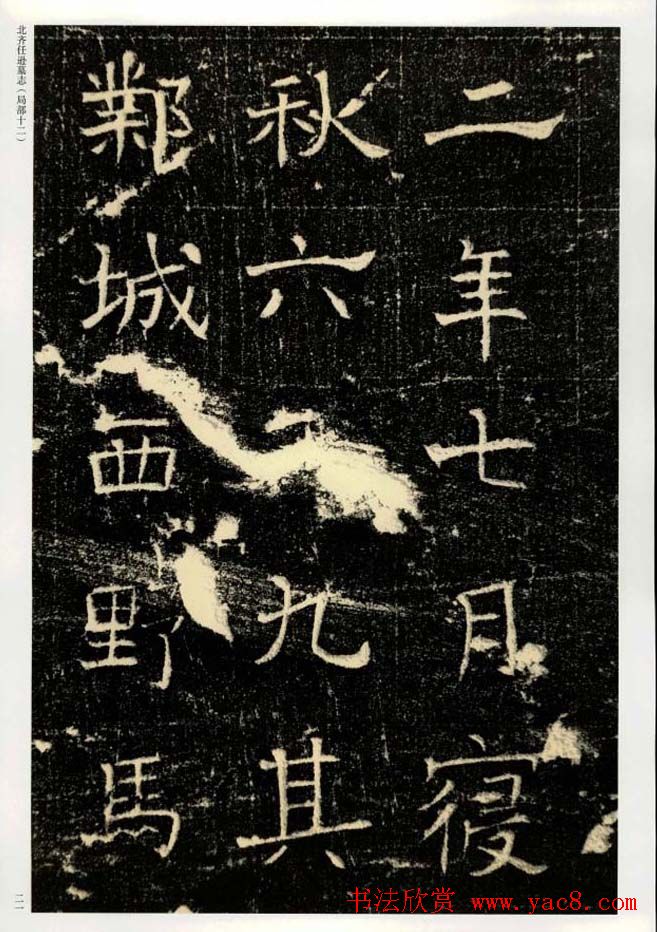 二年七月寢
秋六十九其
鄴城西野馬
北齐任逊墓志（局部十二）
二一
书法欣赏 www.yac8.com